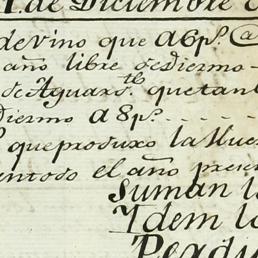 1. de Diciembre
de vino que a 6 ps.
año libre de diezmo
de Aguarte. que tan
Diezmo a 8 ps.
que produxo la Huer
en todo el año presen
Suman l
Ydem l